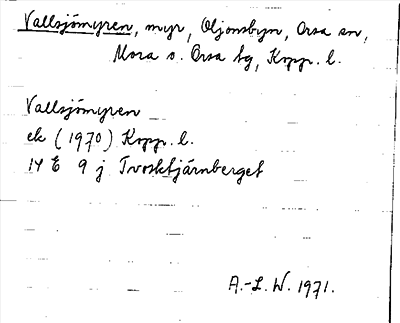 Vallsjömyren, myr, Oljonsbyn, Orsa sn,
Mora o. Orsa tg, Kopp. l.
Vallsjömyren
ek (1970) Kopp. l.
14 E 9 j Tvosktjärnberget
A.-L. W. 1971.